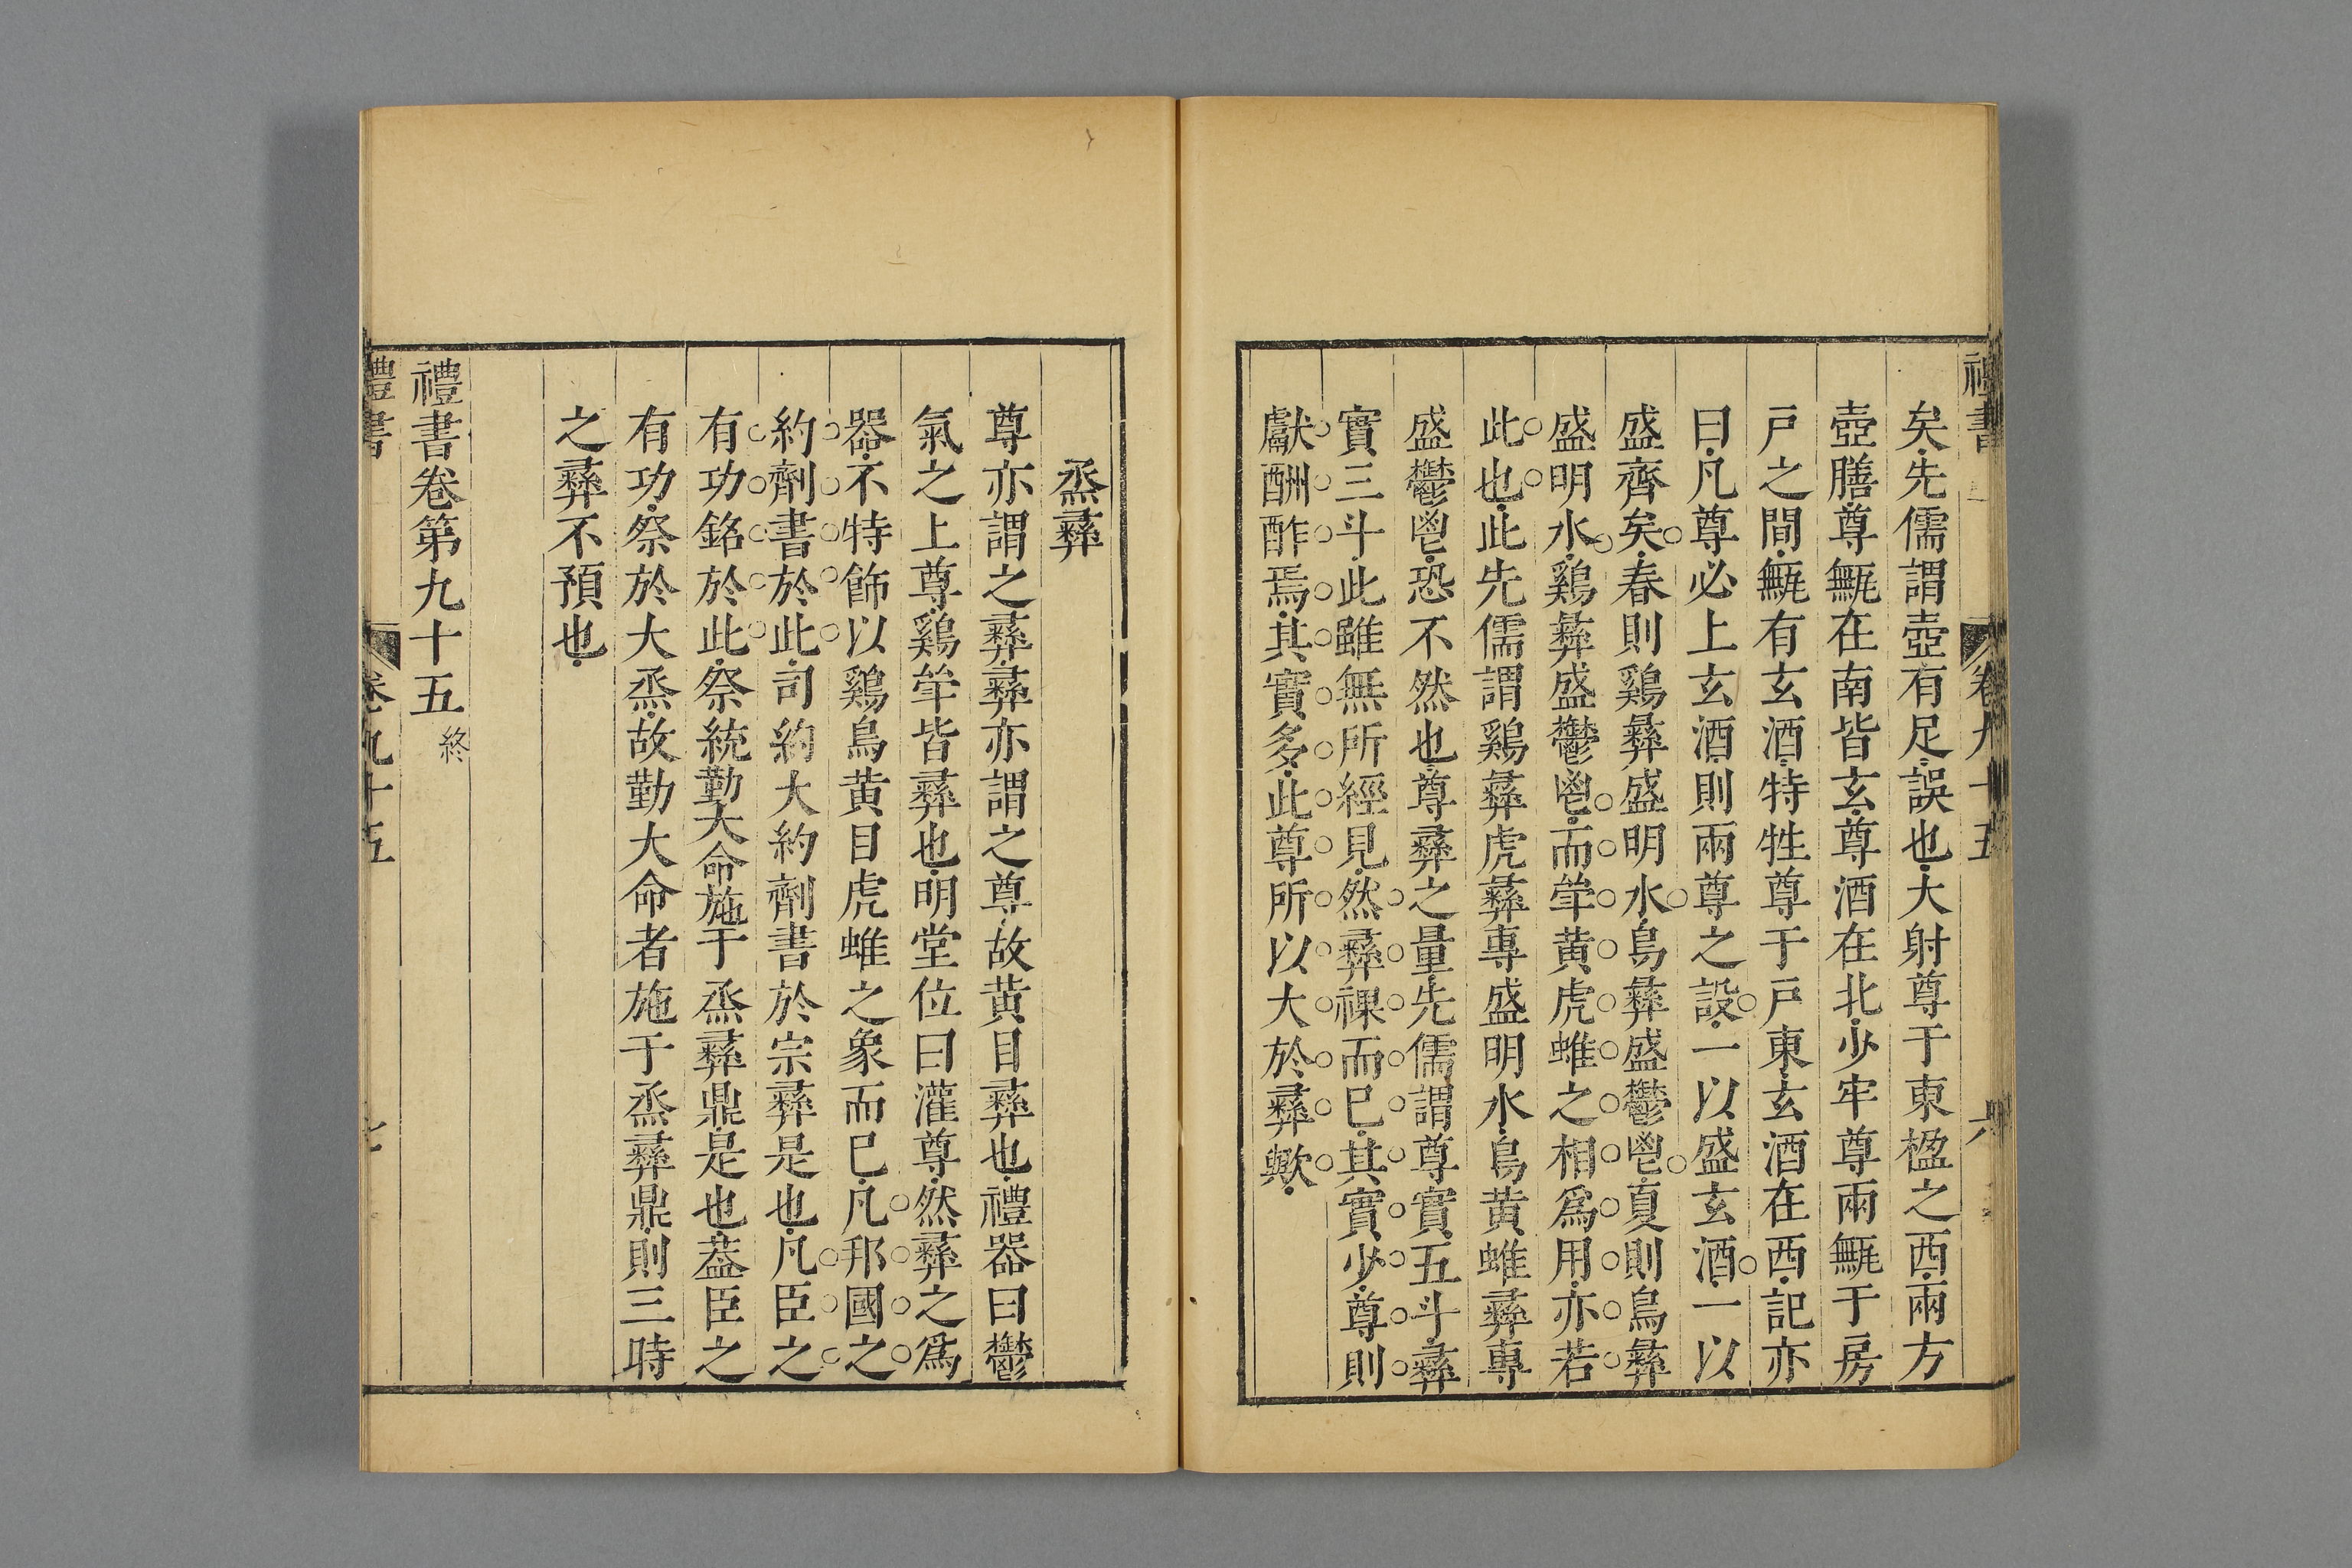 禮書 卷九十五 六
矣先儒謂壺有足誤也大射尊于東楹之西兩方
壺膳尊甒在南皆玄尊酒在北少牢尊兩甒于房
戸之間甒有玄酒特牲尊于戸東玄酒在西記亦
曰凡尊必上玄酒則兩尊之設一以盛玄酒一以
盛齊矣春則鷄彝盛明水鳥彝盛鬱鬯夏則鳥彝
盛明水鷄彝盛鬱鬯而斚黃虎蜼之相爲用亦若
此也此先儒謂鷄彝虎彝專盛明水鳥黃蜼彝專
盛鬱鬯恐不然也尊彝之量先儒謂尊實五斗彝
實三斗此雖無所經見然彝祼而已其實少尊則
獻酬酢焉其實多此尊所以大於彝歟
烝彝
尊亦謂之彝彝亦謂之尊故黃目彝也禮器曰鬱
氣之上尊鷄斚皆彝也明堂位曰灌尊然彝之爲
器不特飾以鷄鳥黃目虎蜼之象而已凡邦國之
約劑書於此司約大約劑書於宗彝是也凡臣之
有功銘於此祭統勤大命施于烝彝鼎是也葢臣之
有功祭於大烝故勤大命者施于烝彝鼎則三時
之彝不預也
禮書卷第九十五終
禮書 卷九十五 七